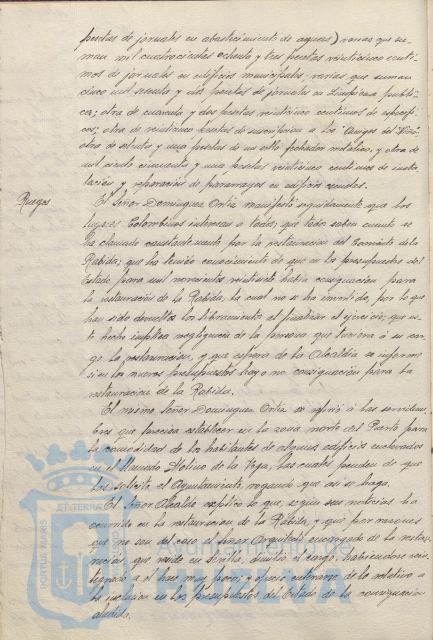 pesetas de jornales en abastecimiento de aguas; varias que su-
man mil cuatrocientas ochenta y tres pesetas veinticinco cénti-
mos de jornales en edificios municipales; varias que suman
cinco mil setenta y dos pesetas de jornales en limpieza públi-
ca; otra de cuarenta y dos pesetas veinticinco céntimos de específi-
cos; otra de veinticinco pesetas de suscripción a los "Amigos del
otra de setenta y una pesetas de un sello fechador metálico, y otra de
mil ciento cincuenta y una pesetas veinticinco céntimos de insta-
lación y reparación de pararrayos en edificios escuelas.
Ruegos
El Señor Dominguez Ortiz manifestó seguidamente que los
lugares Colombinos interesan a todos; que todos saben cuanto se
ha clamado constantemente por la restauración del Convento de la
Rábida; que ha tenido conocimiento de que en los presupuestos del
Estado para mil novecientos veintisiete había consignación para
la restauración de la Rábida, la cual no se ha invertido, por lo que
han sido devueltos los libramientos al finalizar el ejercicio; que es-
te hecho implica negligencia de la persona que tuviera a su car-
go la restauración, y que espera de la Alcaldía se informe
si en los nuevos presupuestos hay o no consignación para la
restauración de la Rábida.
El mismo Señor Dominguez Ortiz se refirió á las servidum-
bres que precisa establecer en la zona norte del Puerto para
la comodidad de los habitantes de algunos edificios enclavados
en el llamado Molino de la Vega, las cuales penden de que
las solicite el Ayuntamiento, rogando que así se haga.
El Señor Alcalde explicó lo que, según sus noticias ha
ocurrido en la restauración de la Rábida, y que por razones
que no son del caso el señor Arquitecto encargado de la restau-
ración, que reside en Sevilla, dimitió el cargo, habiéndose rein-
tegrado a él hace muy poco; y ofreció enterarse de lo relativo a
la inclusión en los presupuestos del Estado de la consignación
aludida.
Ayuntamiento de
HUELVA
PORTUS MARIS
ET TERRAE